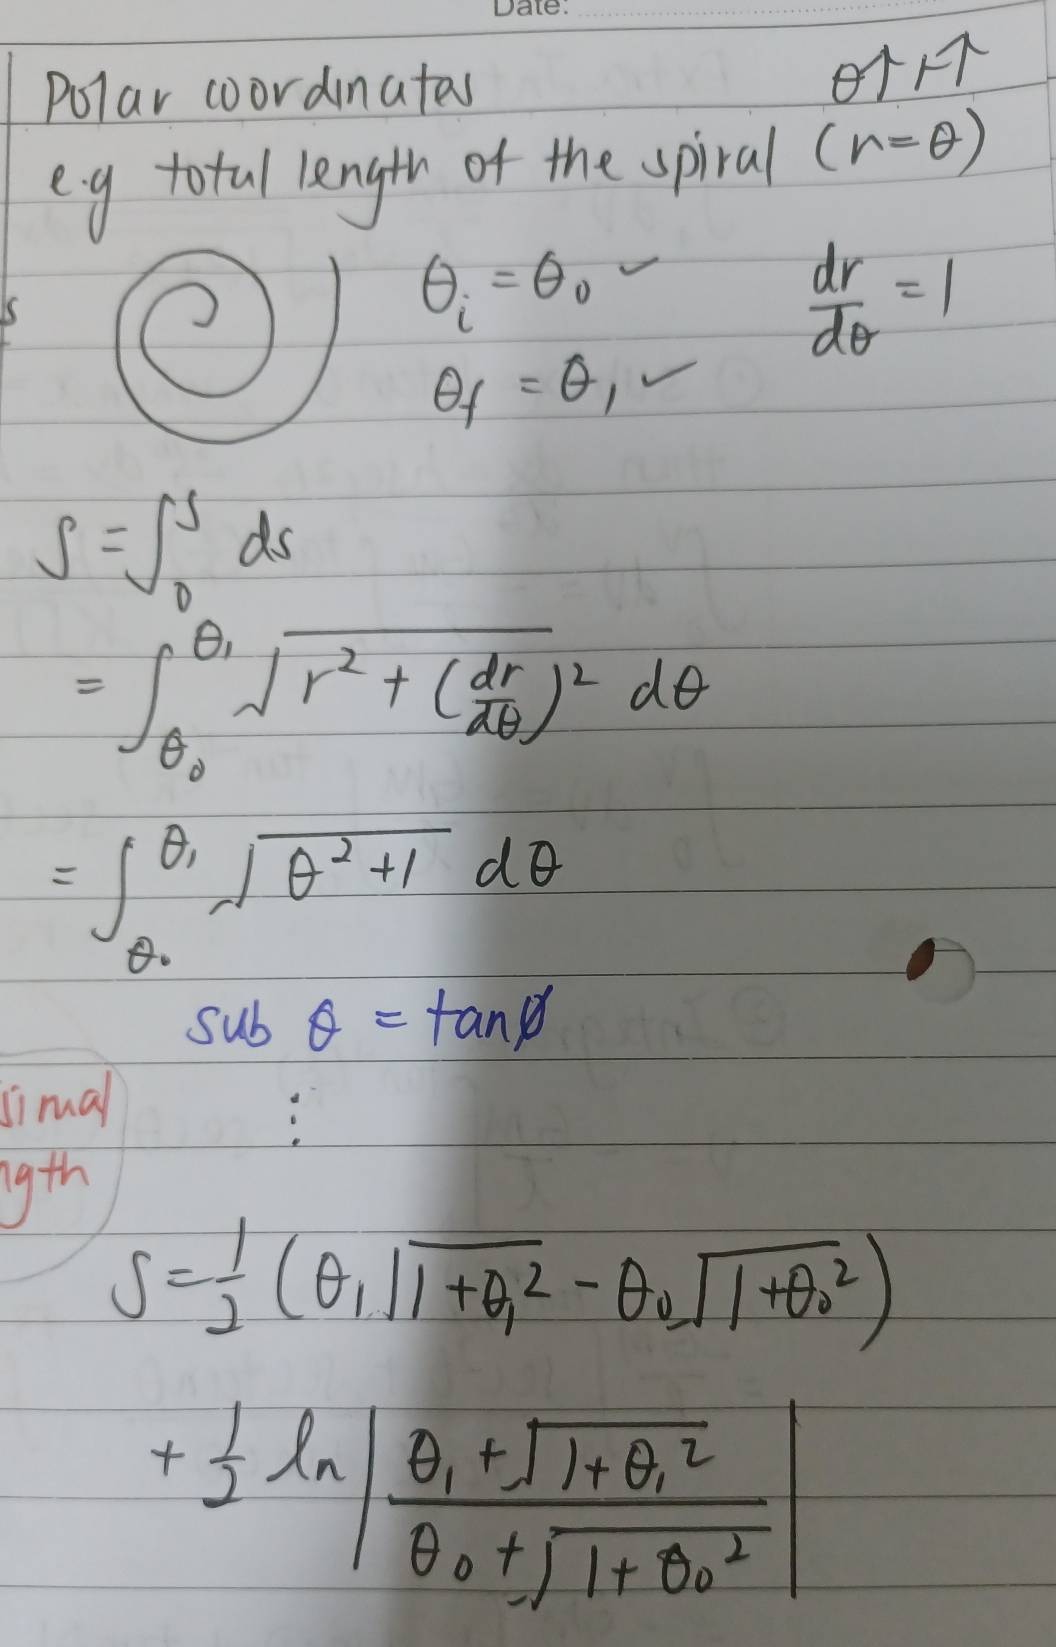 Date:
Polar coordinates θ↑ r↑
e.g total length of the spiral (r=θ)
θᵢ = θ₀ ✓ dr/dθ = 1
θf = θ₁ ✓
S = ∫₀ˢ ds
= ∫_θ₀^θ₁ √(r² + (dr/dθ)²) dθ
= ∫_θ₀^θ₁ √(θ²+1) dθ
sub θ = tanφ
simal
⋮
ngth
S = 1/2 (θ₁√(1+θ₁²) - θ₀√(1+θ₀²))
+ 1/2 ln |(θ₁ + √(1+θ₁²))/(θ₀ + √(1+θ₀²))|